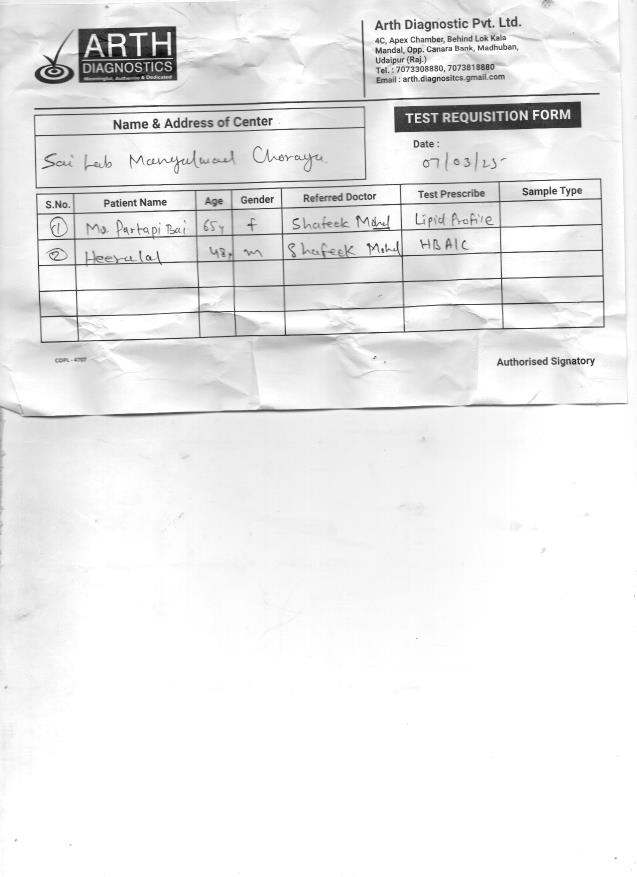 ARTH
DIAGNOSTICS
Meaningful, Authentic & Dedicated
Arth Diagnostic Pvt. Ltd.
4C, Apex Chamber, Behind Lok Kala
Mandal, Opp. Canara Bank, Madhuban,
Udaipur (Raj.)
Tel. : 7073308880, 7073818880
Email : arth.diagnositcs.gmail.com
Name & Address of Center
TEST REQUISITION FORM
Sai Lab Mangalwad Choraya
Date :
07/03/25
S.No. Patient Name Age Gender Referred Doctor Test Prescribe Sample Type
1 Ms. Partapi Bai 65y f Shafeek Mohd Lipid Profile
2 Heeralal 48y m Shafeek Mohd HBA1C
CDPL - 4707
Authorised Signatory